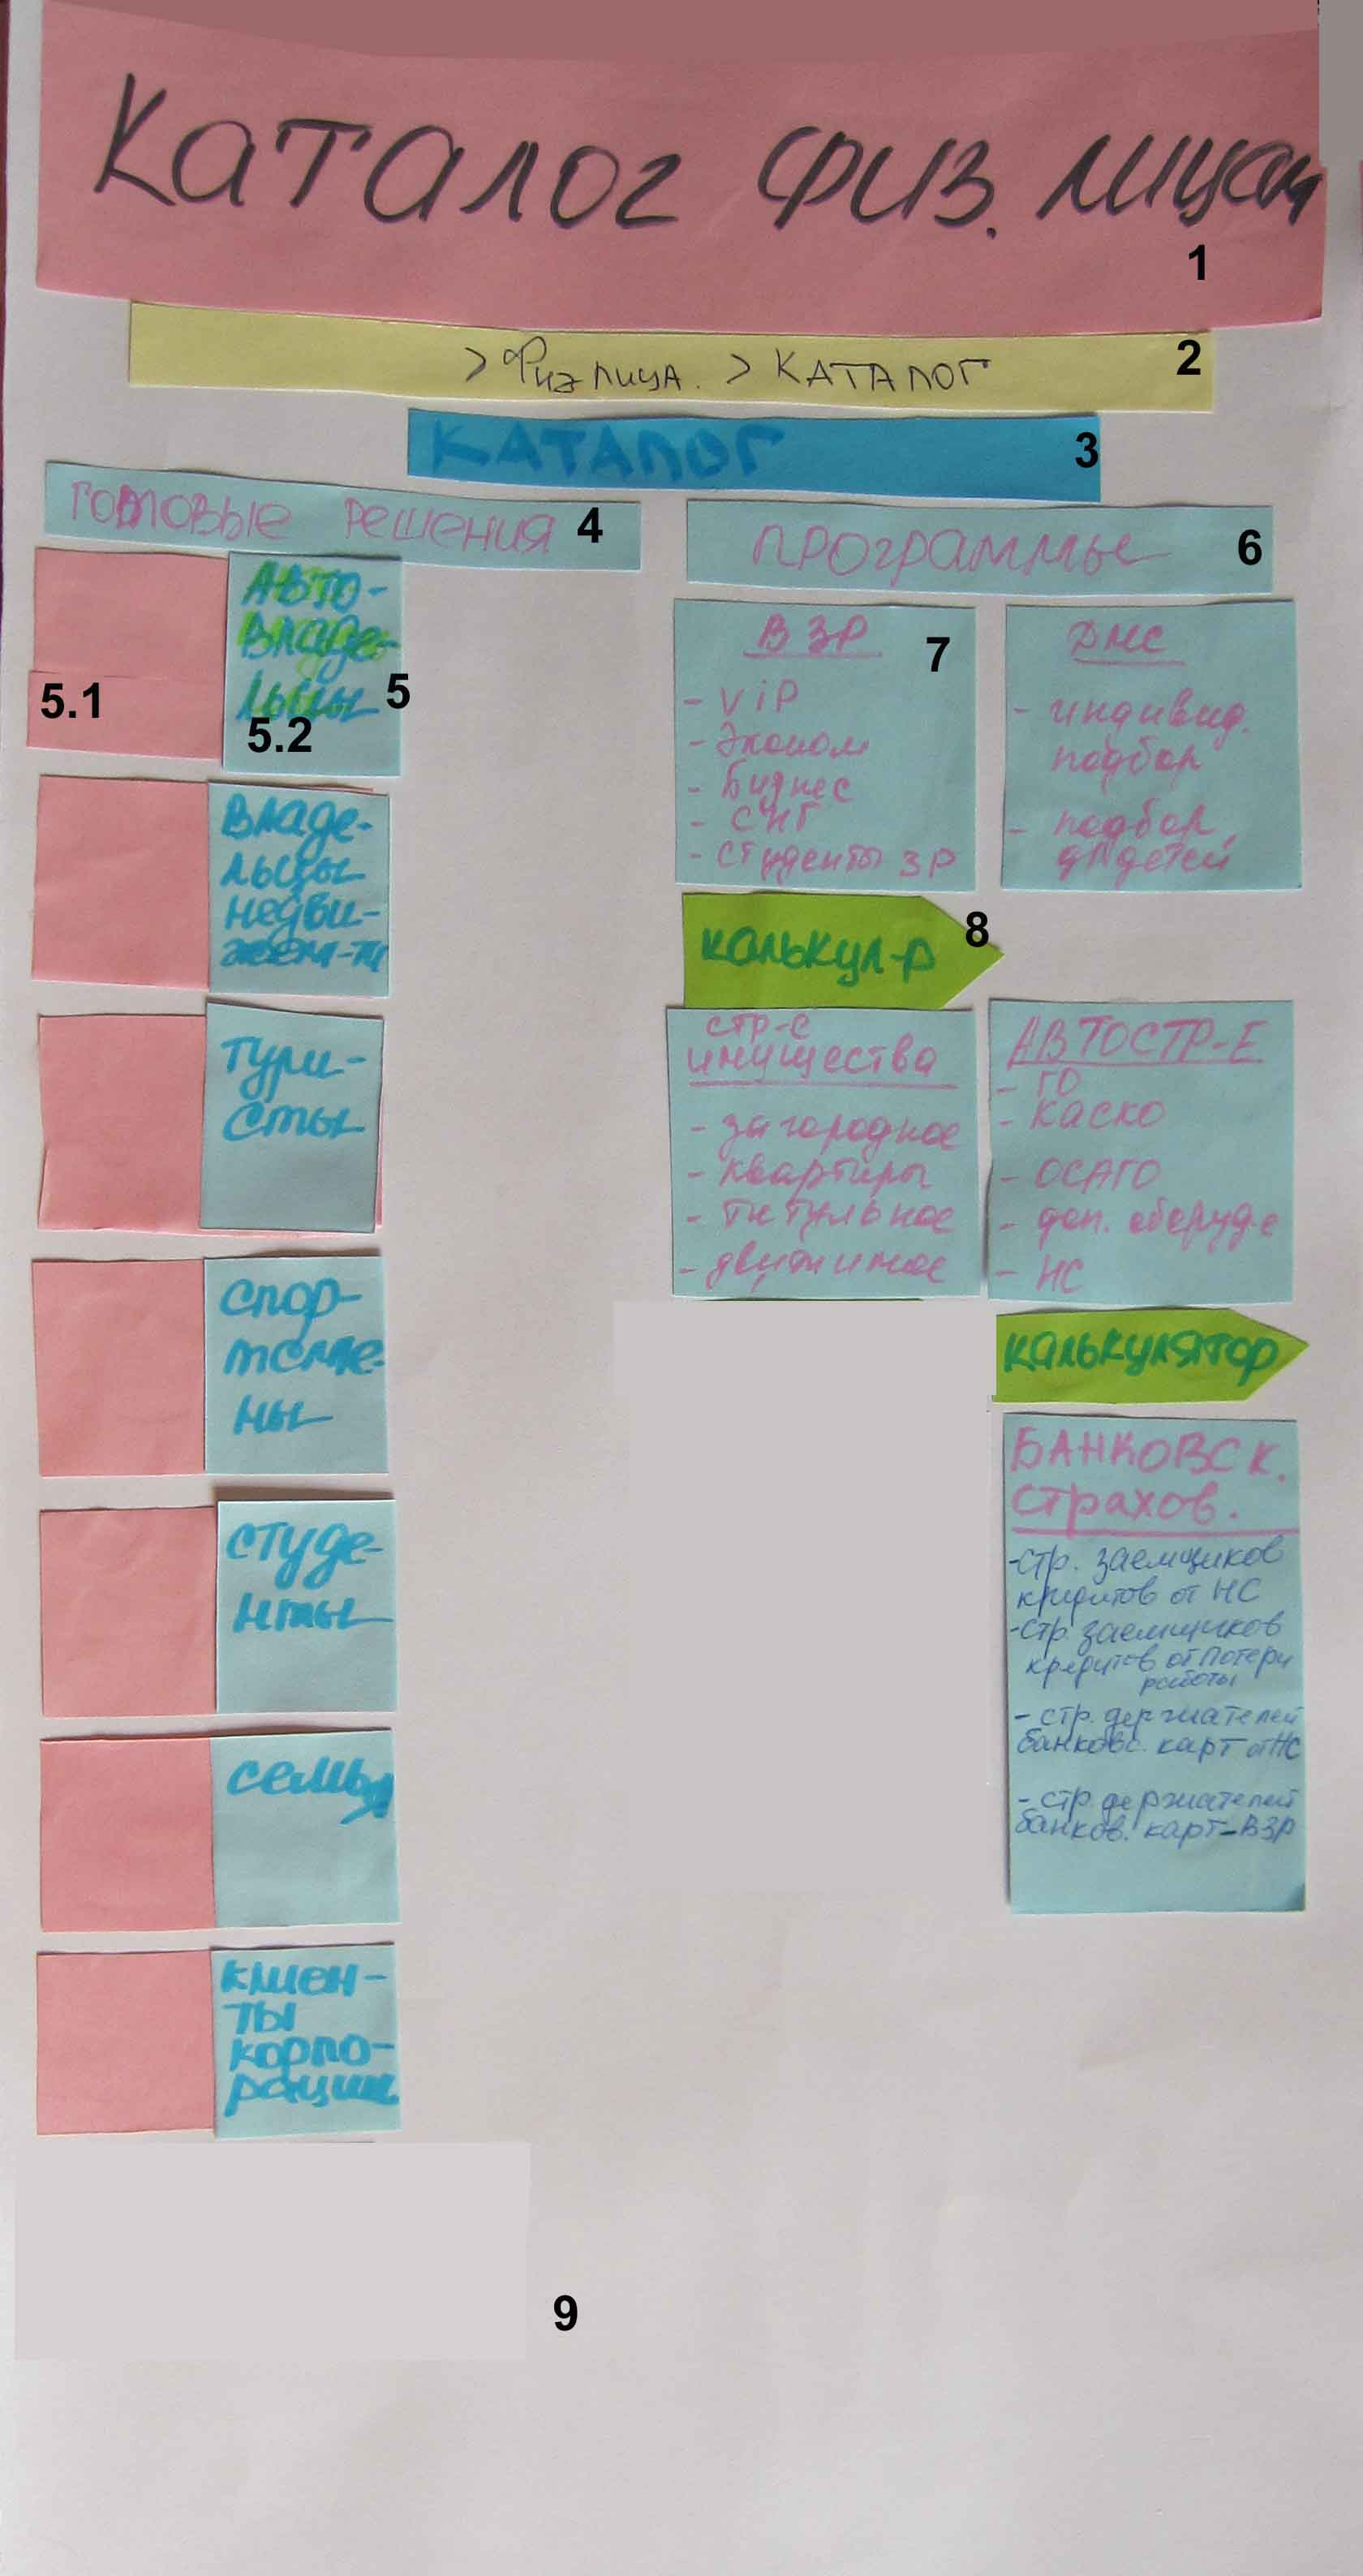 Каталог физ. лицам
1
> Физ лица. > КАТАЛОГ
2
КАТАЛОГ
3
готовые решения
4
Авто-
владе-
льцы
5
5.1
5.2
Владе-
льцы
недви-
жем-ти
Тури-
сты
Спор-
тсме-
ны
Студе-
нты
семья
клиен-
ты
корпо-
рации
программы
6
ВЗР
7
- ViP
- Эконом
- Бизнес
- СНГ
- студенты ЗР
ДМС
- индивид.
подбор
- подбор
дл детей
калькул-р
8
стр-е
имущества
- загородное
- квартиры
- титульное
- движимое
АВТОСТР-Е
- ГО
- КАСКО
- ОСАГО
- доп. оборуд-е
- НС
калькулятор
БАНКОВСК.
страхов.
- стр. заемщиков
кредитов от НС
- стр. заемщиков
кредитов от потери
работы
- стр. держателей
банковс. карт от НС
- стр. держателей
банков. карт-ВЗР
9